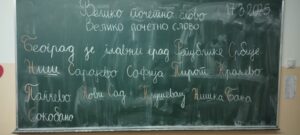 Велико почетно слово 17.3.2025
Велико почетно слово
Београд је главни град Републике Србије.
Ниш Сарајево Софија Пирот Краљево
Панчево Нови Сад Крушевац Нишка Бања
Сокобања